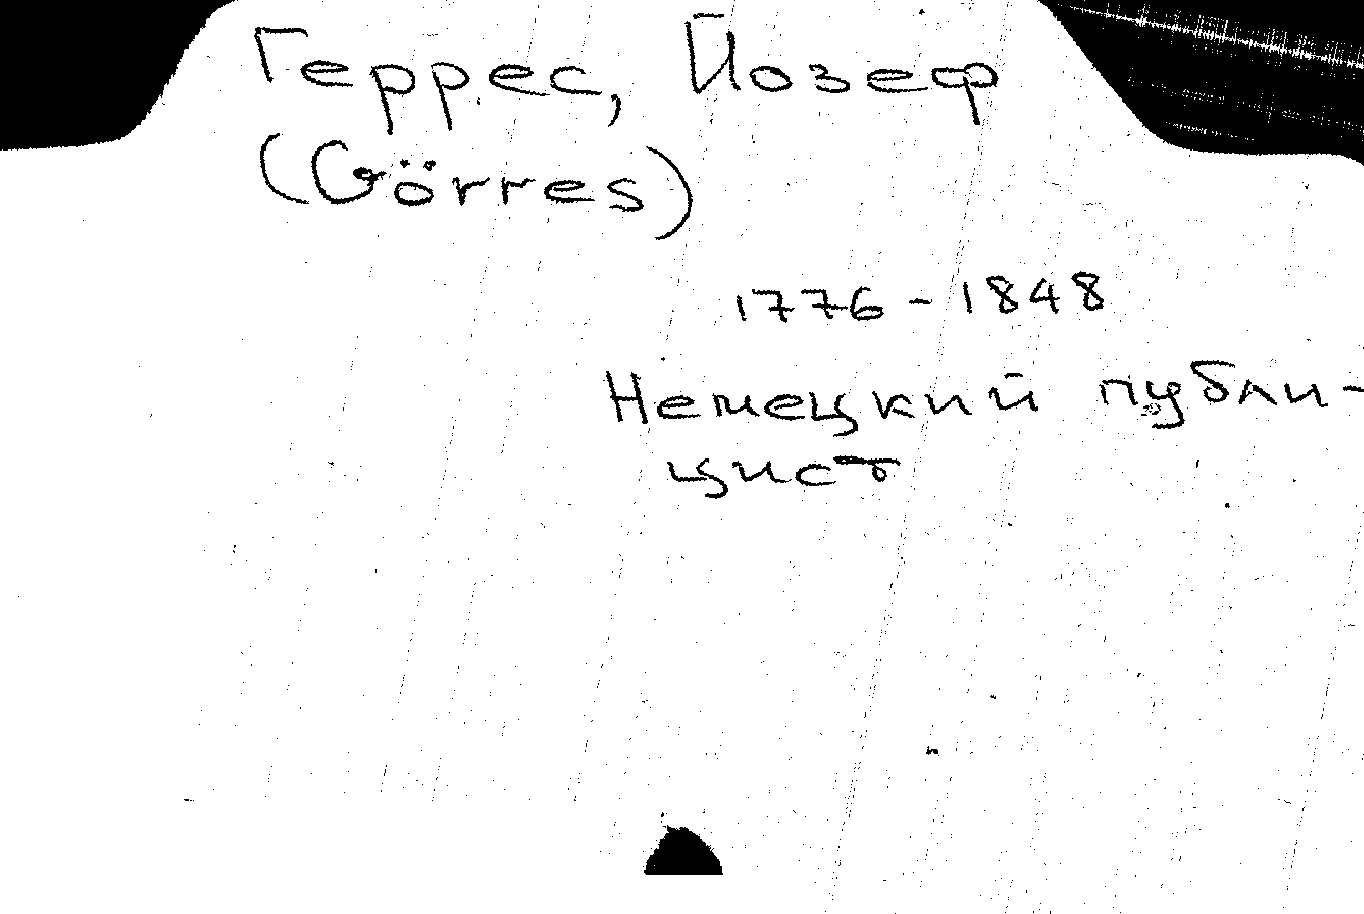 Геррес, Йозеф
(Görres)
1776 - 1848
Немецкий публи-
цист